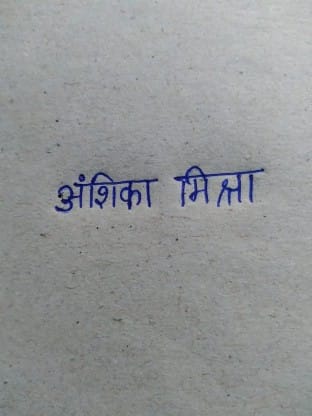 अंशिका मिश्रा